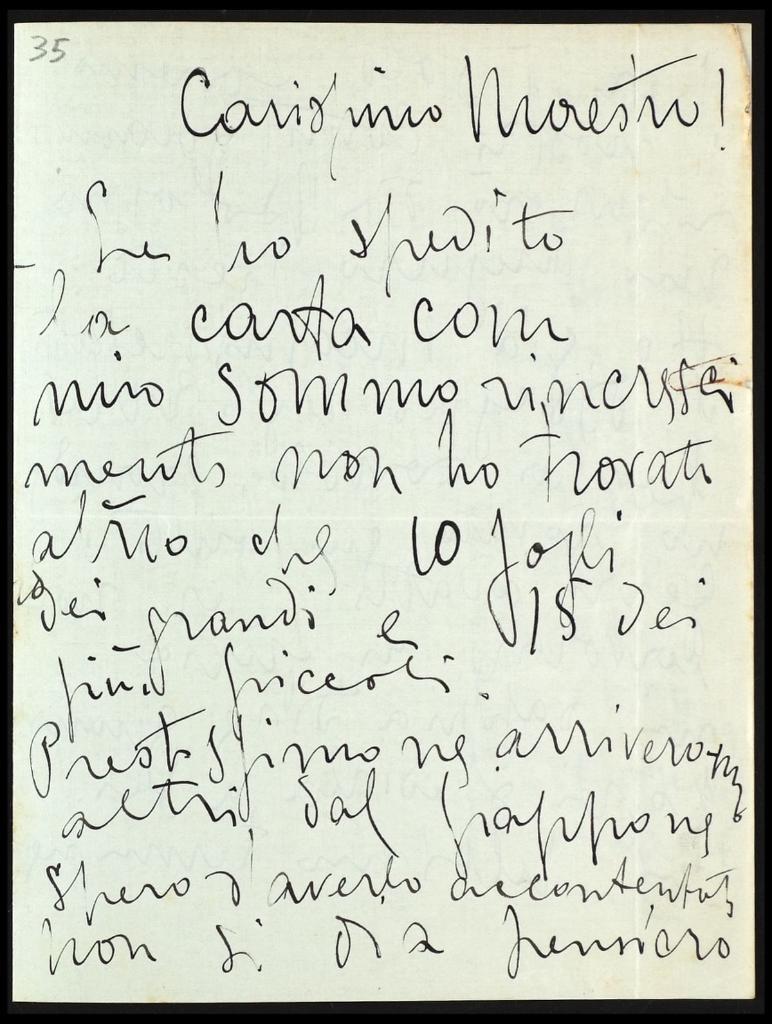 35
Carissimo Maestro!
Le ho spedito
la carta com
mio sommo rincresci
mento non ho trovato
altro che 10 fogli
dei grandi e 15 dei
più piccoli.
Prestissimo ne arriverann
altri dal Giappone
spero d'averlo accontentato
non si dia pensiero